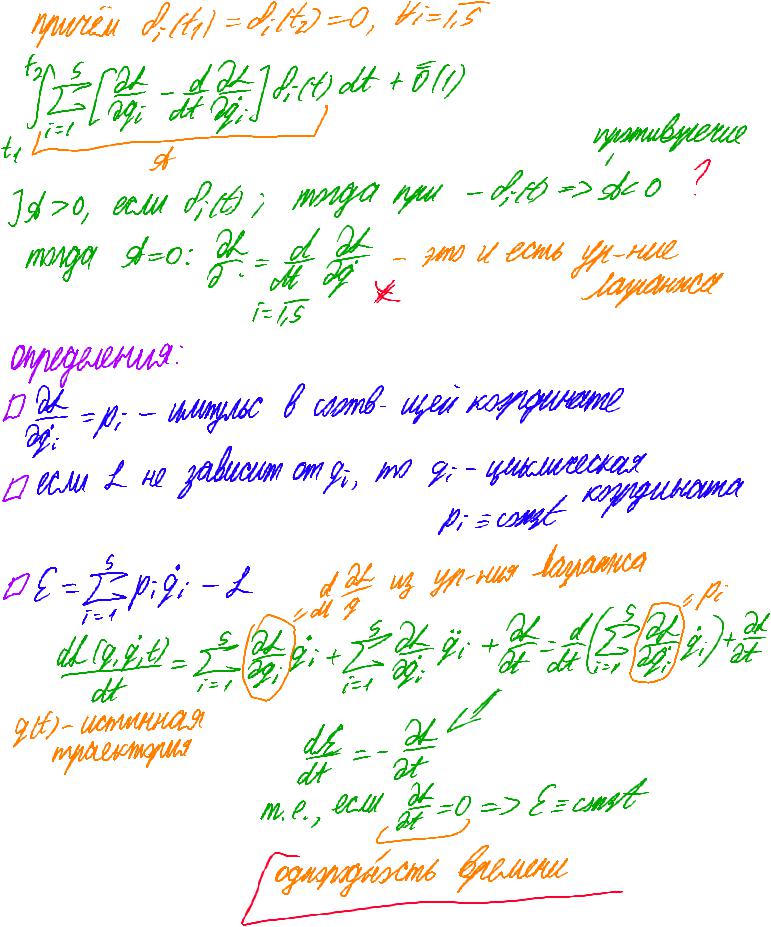 причём δᵢ(t₁) = δᵢ(t₂) = 0, ∀i = 1,s
t₂ ∫ t₁ Σ i=1 s [∂L/∂qᵢ − d/dt ∂L/∂q̇ᵢ] δᵢ(t) dt + ō(1)
A
противоречие
]A > 0, если δᵢ(t); тогда при − δᵢ(t) => A < 0 ?
тогда A = 0: ∂L/∂ . = d/dt ∂L/∂q̇ – это и есть ур-ние
i = 1,s
Лагранжа
определения:
∂L/∂q̇ᵢ = pᵢ – импульс в соотв-щей координате
если L не зависит от qᵢ, то qᵢ – циклическая
координата
pᵢ ≡ const
ℰ = Σ i=1 s pᵢ q̇ᵢ − L
= d/dt ∂L/q̇ из ур-ния Лагранжа
= pᵢ
dL(q, q̇, t)/dt = Σ i=1 s ∂L/∂qᵢ q̇ᵢ + Σ i=1 s ∂L/∂q̇ᵢ q̈ᵢ + ∂L/∂t = d/dt (Σ i=1 s ∂L/∂q̇ᵢ q̇ᵢ) + ∂L/∂t
q(t) – истинная
траектория
dℰ/dt = − ∂L/∂t
т.е., если ∂L/∂t = 0 => ℰ ≡ const
однородность времени